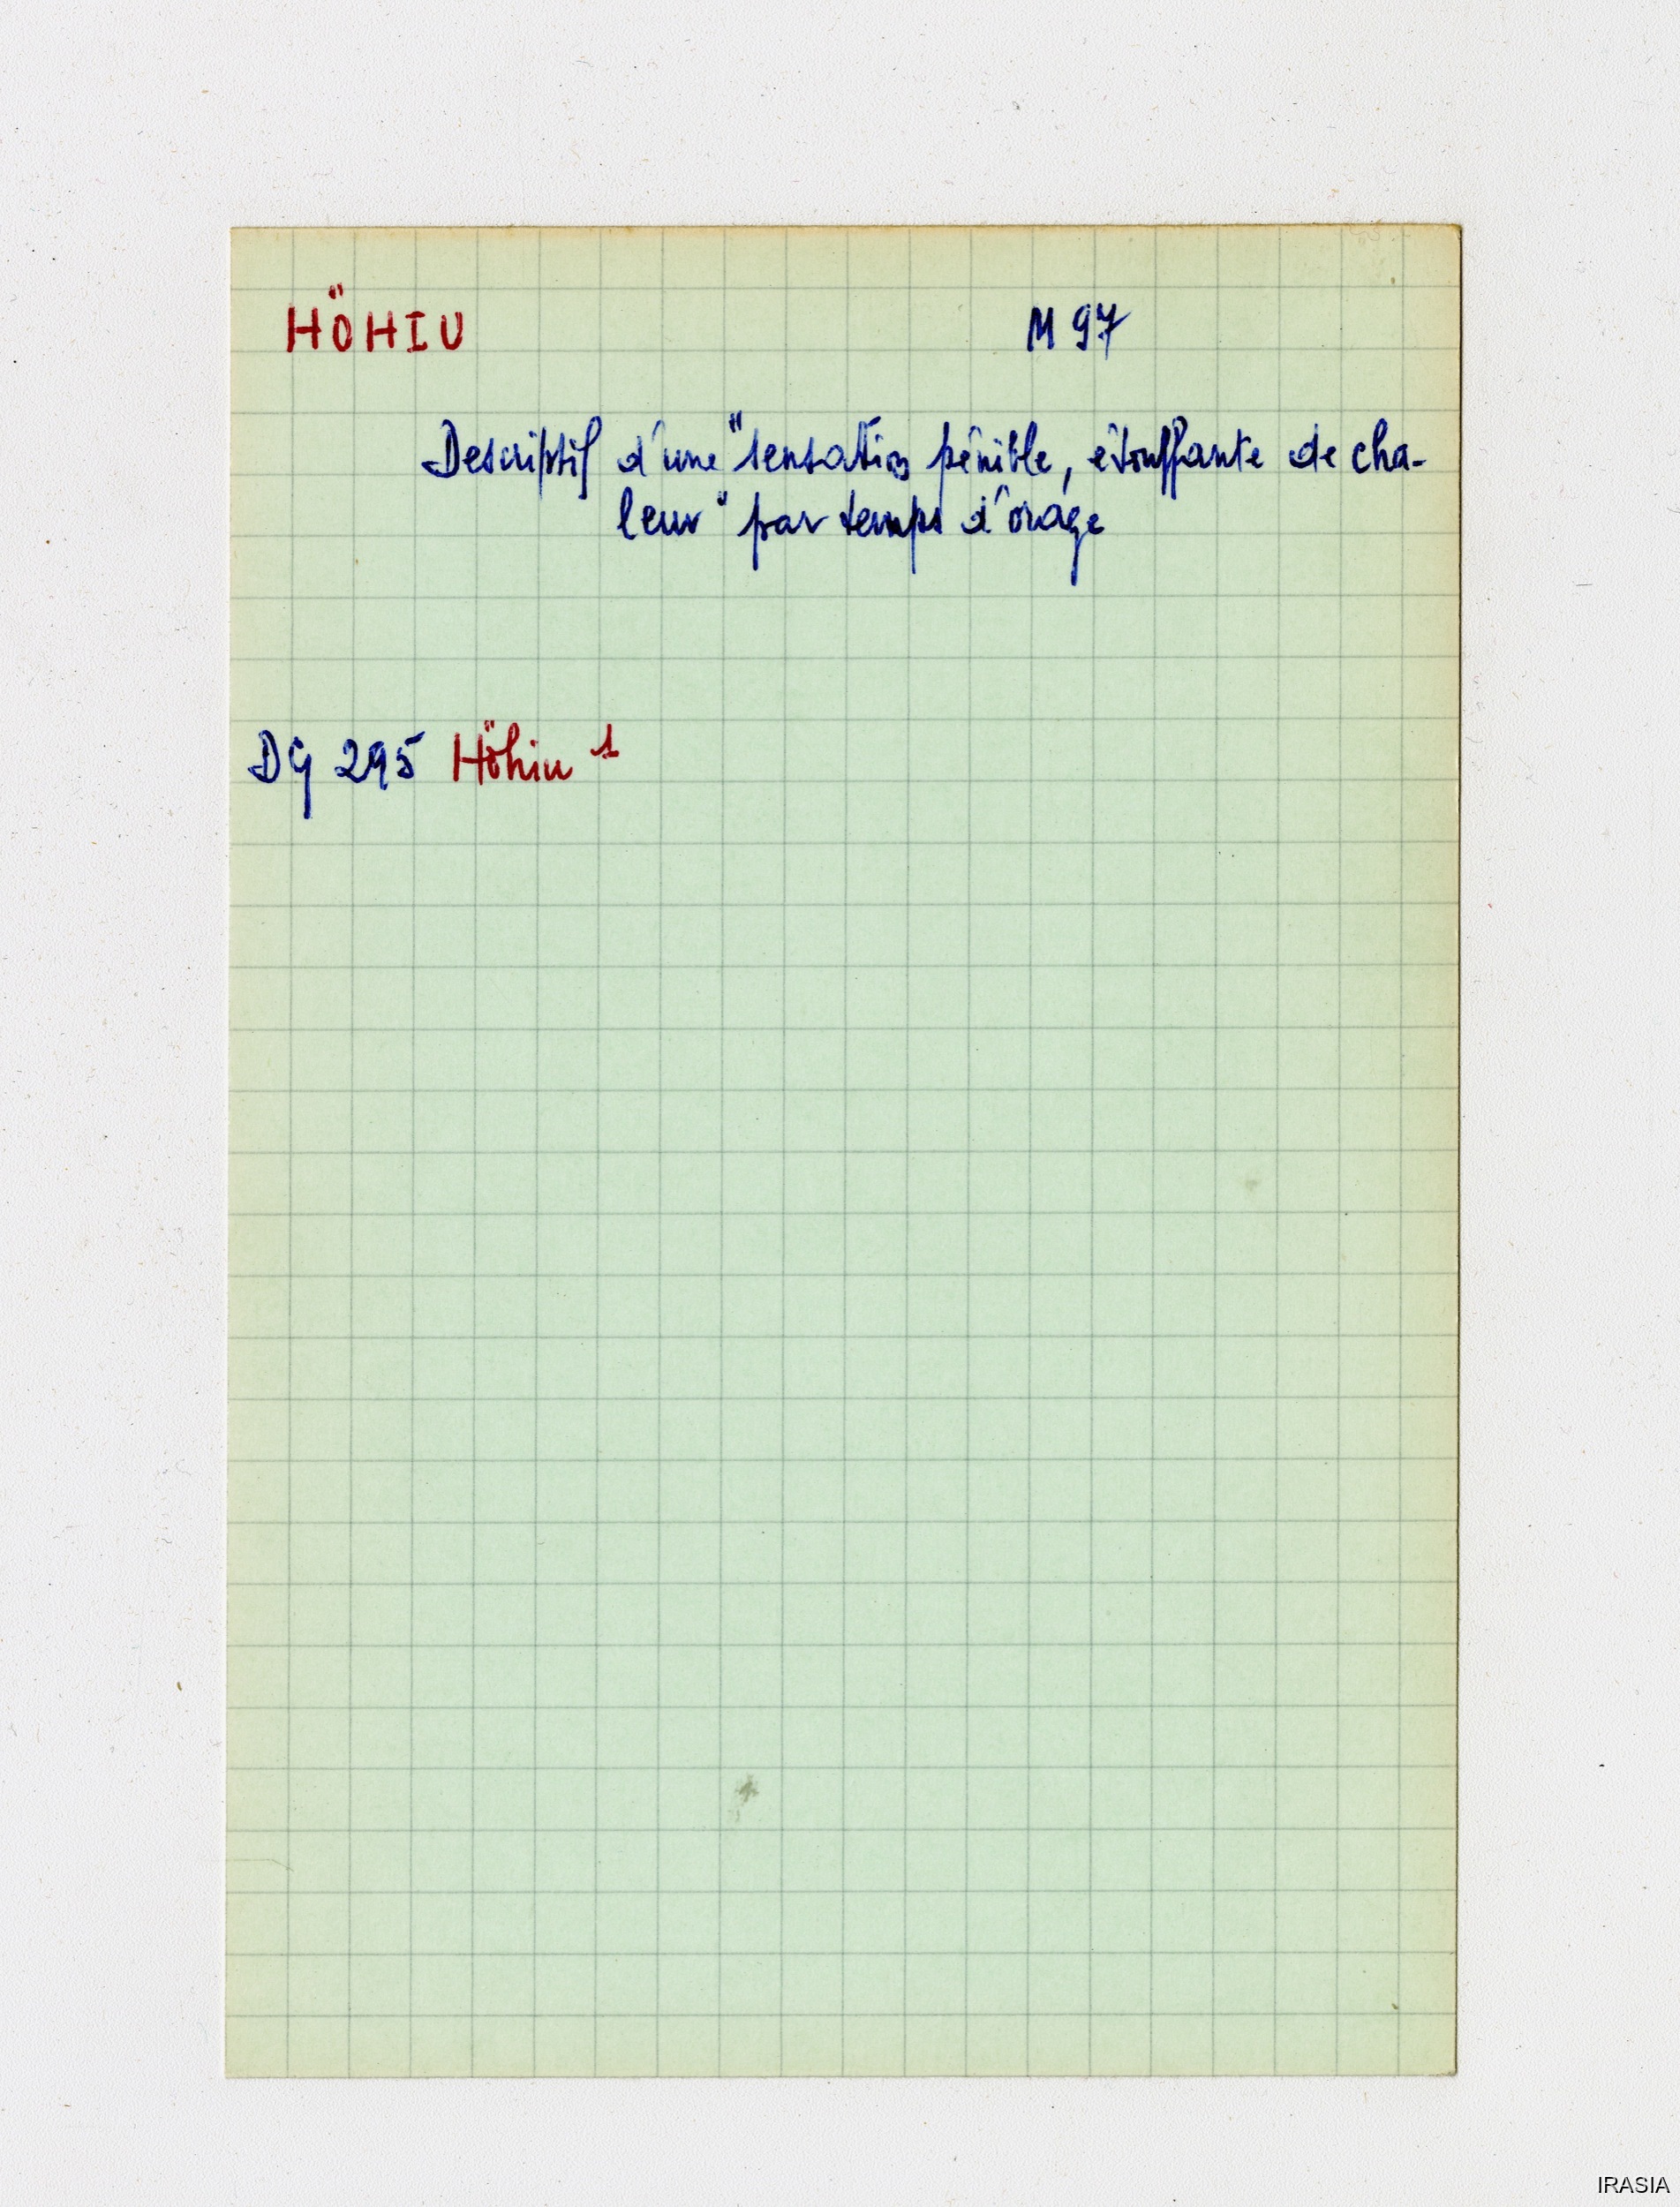 HÖHIU M 97
Descriptif d'une "sensation pénible, étouffante de cha-
leur" par temps d'orage
DG 295 Höhiu 1
IRASIA